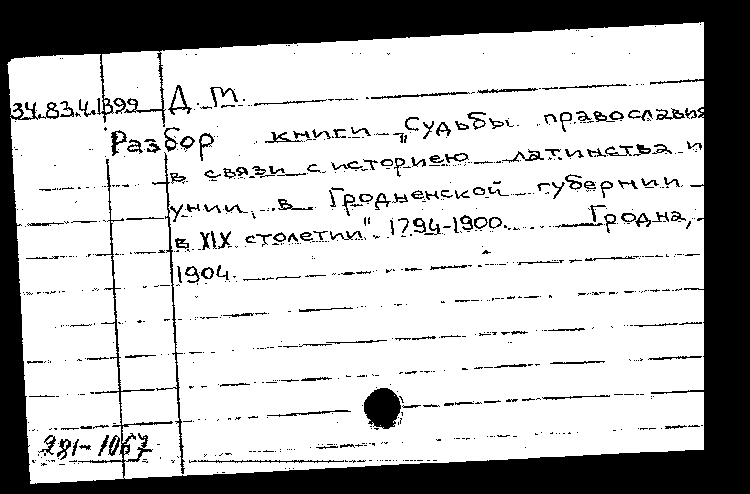 34.83.4.1399 Д. М.
Разбор книги „Судьбы православия
в связи с историею латинства и
унии, в Гродненской губернии
в XIX столетии". 1794-1900. Гродна,
1904.
281-1067